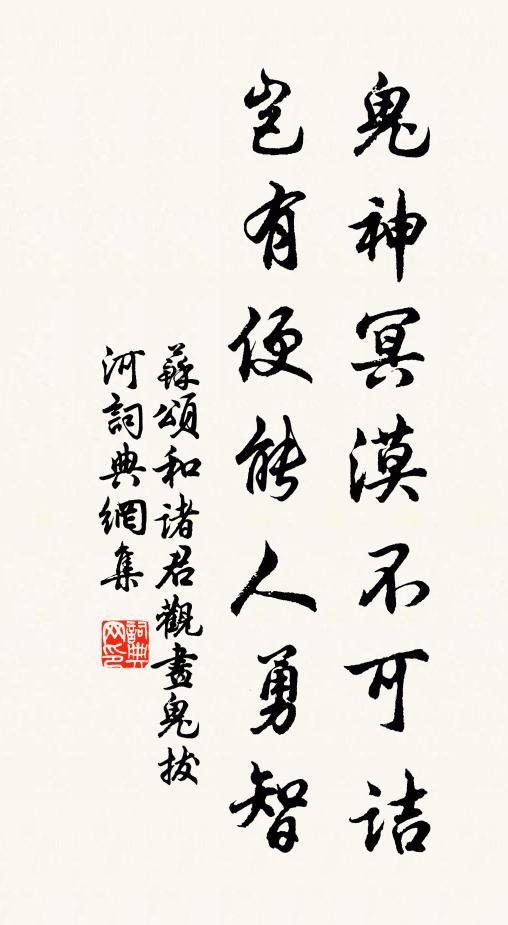 鬼神冥漠不可詰
豈有便能人勇智
蘇頌和諸君觀畫鬼拔
河詞典網集
詞典网印